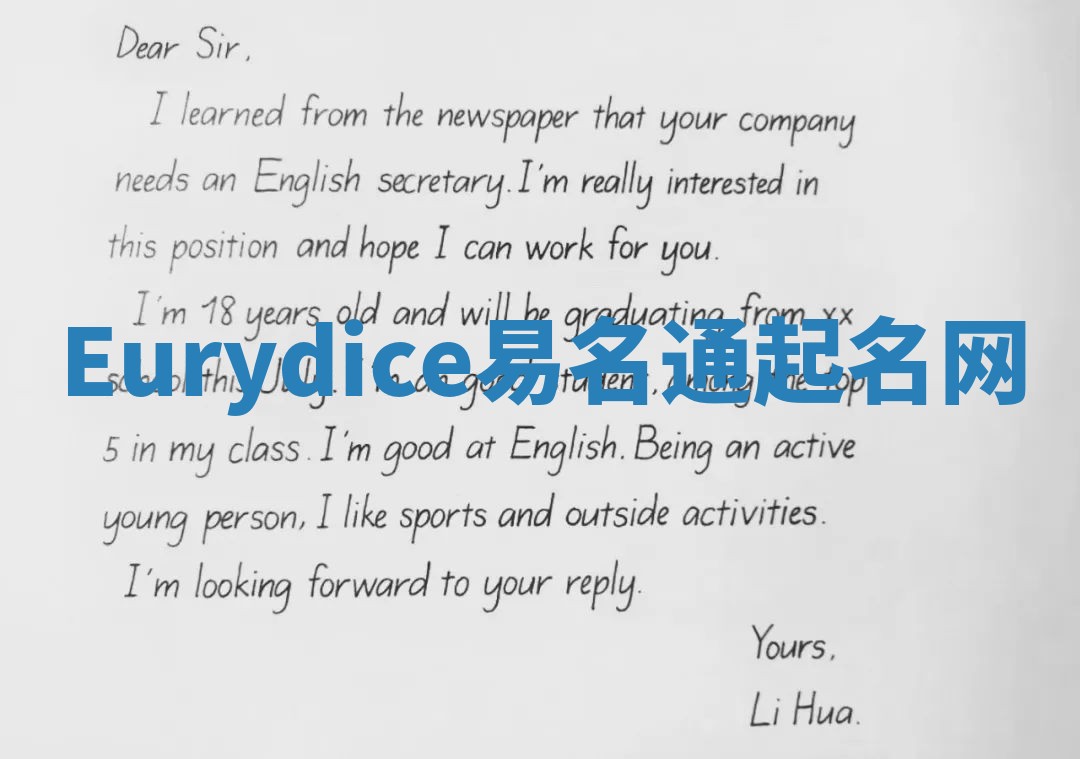 Dear Sir,
I learned from the newspaper that your company
needs an English secretary. I'm really interested in
this position and hope I can work for you.
I'm 18 years old and will be graduating from xx
Eurydice易名通起名网
school this July. I'm an good student, among the top
5 in my class. I'm good at English. Being an active
young person, I like sports and outside activities.
I'm looking forward to your reply.
Yours,
Li Hua.